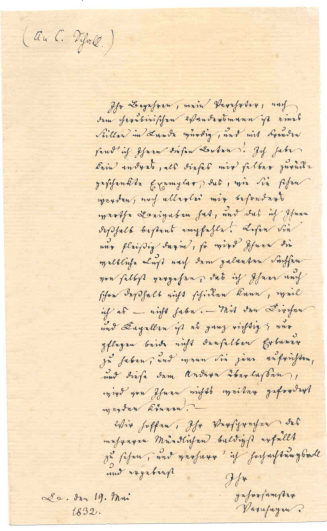 (An C. Schall.)
Ihr Begehren, mein Verehrter, nach
dem cherubinischen Wandersmann ist eines
Stillen im Lande würdig, und mit Freuden
send' ich Ihnen diesen Boten! Ich habe
kein andres, als dieses mir selber zurück
geschenkte Exemplar, das, wie Sie sehen
werden, noch allerlei mir besonders
werthe Beigaben hat, und das ich Ihnen
deßhalb bestens empfehle. Lesen Sie
nur fleißig darin, so wird Ihnen die
weltliche Lust nach dem
von selbst vergehen, das ich Ihnen auch
schon deßhalb nicht schicken kann, weil
ich es — nicht habe. — Mit den Kirchen
und Kapellen ist es ganz richtig; nur
pflegen beide nicht denselben Erbauer
zu haben; und wenn Sie jene aufrichten,
und diese dem Andern überlassen,
wird von Ihnen nichts weiter gefordert
werden können. —
Wir hoffen, Ihr Versprechen des
mehreren Mündlichen baldigst erfüllt
zu sehen, und verharr' ich hochachtungsvoll
und ergebenst
Ihr
gehorsamster
Varnhagen.
den 19. Mai
1832.